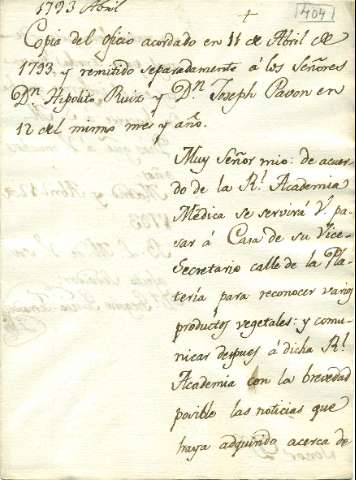 1793 Abril
404
Copia del oficio acordado en 11 de Abril de
1793 y remitido separadamente á los Señores
Dn. Hipolito Ruiz y Dn. Joseph Pavon en
12 del mismo mes y año.
Muy Señor mio: de acuer
do de la Rl. Academia
Médica se servirá V. pa-
sar á Casa de su Vice-
Secretario calle de la Pla-
tería para reconocer varios
productos vegetales: y comu-
nicar despues á dicha Rl.
Academia con la brevedad
posible las noticias que
haya adquirido acerca de